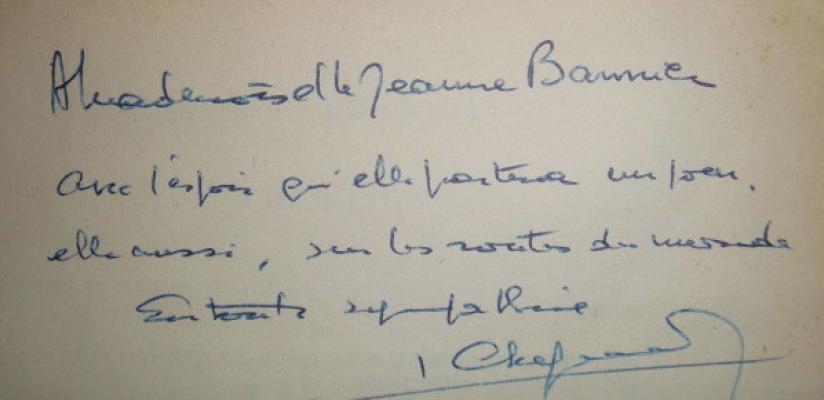 A Mademoiselle Jeanne Bannier
avec l'espoir qu'elle partira un jour,
elle aussi, sur les routes du monde
En toute sympathie